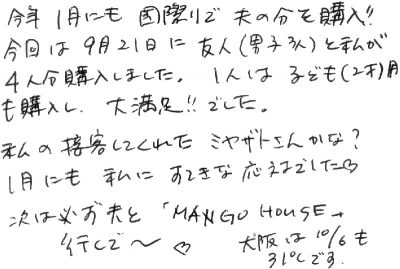 今年1月にも 国際リで 夫の分を購入!!
今回は9月21日に 友人(男子3人)と私が
4人分購入しました。 1人は 子ども(2才)用
も購入し、大満足!!でした。
私の接客してくれた ミヤザトさんかな?
1月にも 私に すてきな 応えでした♡
次は必ず夫と 「MANGO HOUSE」
行くで〜 ♡ 大阪は 10/6 も
31℃です。